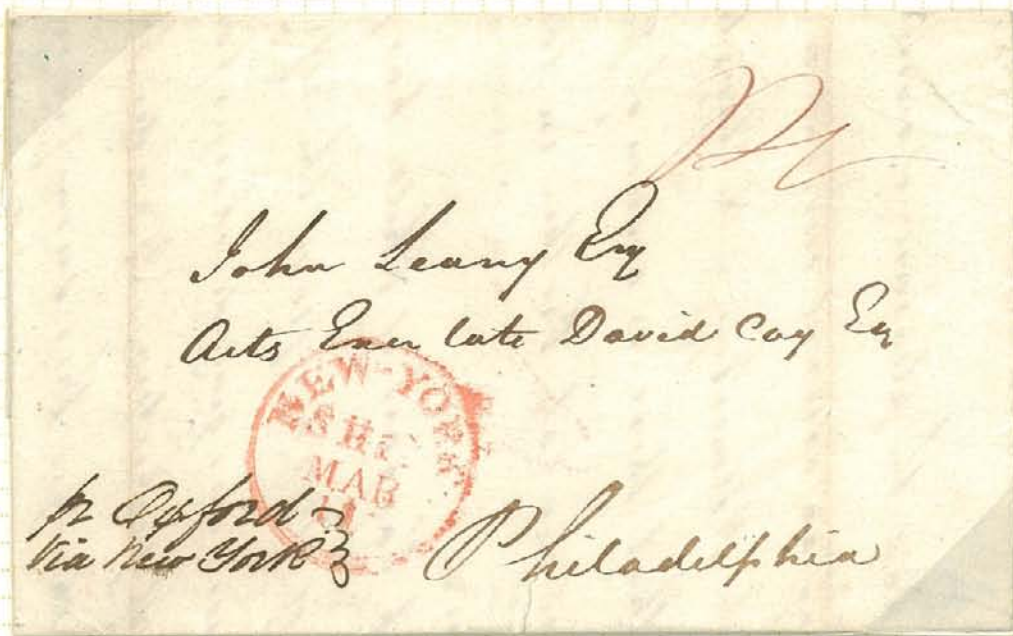 John Leany Esq
Acts Exer late David Cay Esq
NEW-YORK
SHIP
MAR
pr Oxford
via New York
Philadelphia